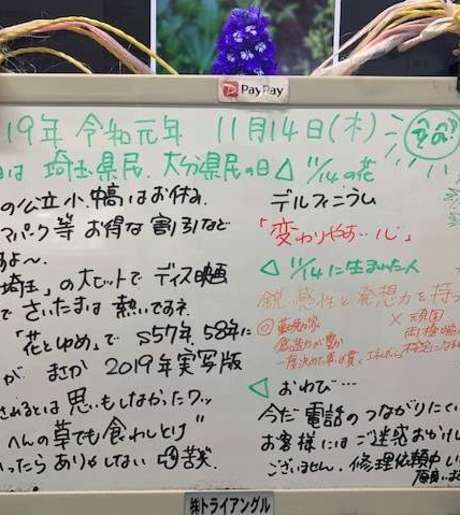 PayPay
19年 令和元年 11月14日(木)
日は 埼玉県民、大分県民の日
の公立小、中、高はお休み、
マパーク等 お得な割引など
すよ〜。
埼玉」の大ヒットで ディス映画
で さいたまは 熱いですネ
「花とゆめ」で S57年、58年に
が まさか 2019年実写版
されるとは思いもしなかったワッ
へんの草でも食わしとけ"
いったら ありゃしない 苦笑
△ 11/14の花
デルフィニウム
「変わりやすい心」
△ 11/14に生まれた人
鋭い感性と発想力を持つ
◎ 勤勉家
創造力が豊か
× 頑固
△ おわび…
今だ 電話のつながりにくい
お客様には ご迷惑おかけし
ございません。修理依頼中
㈱トライアングル